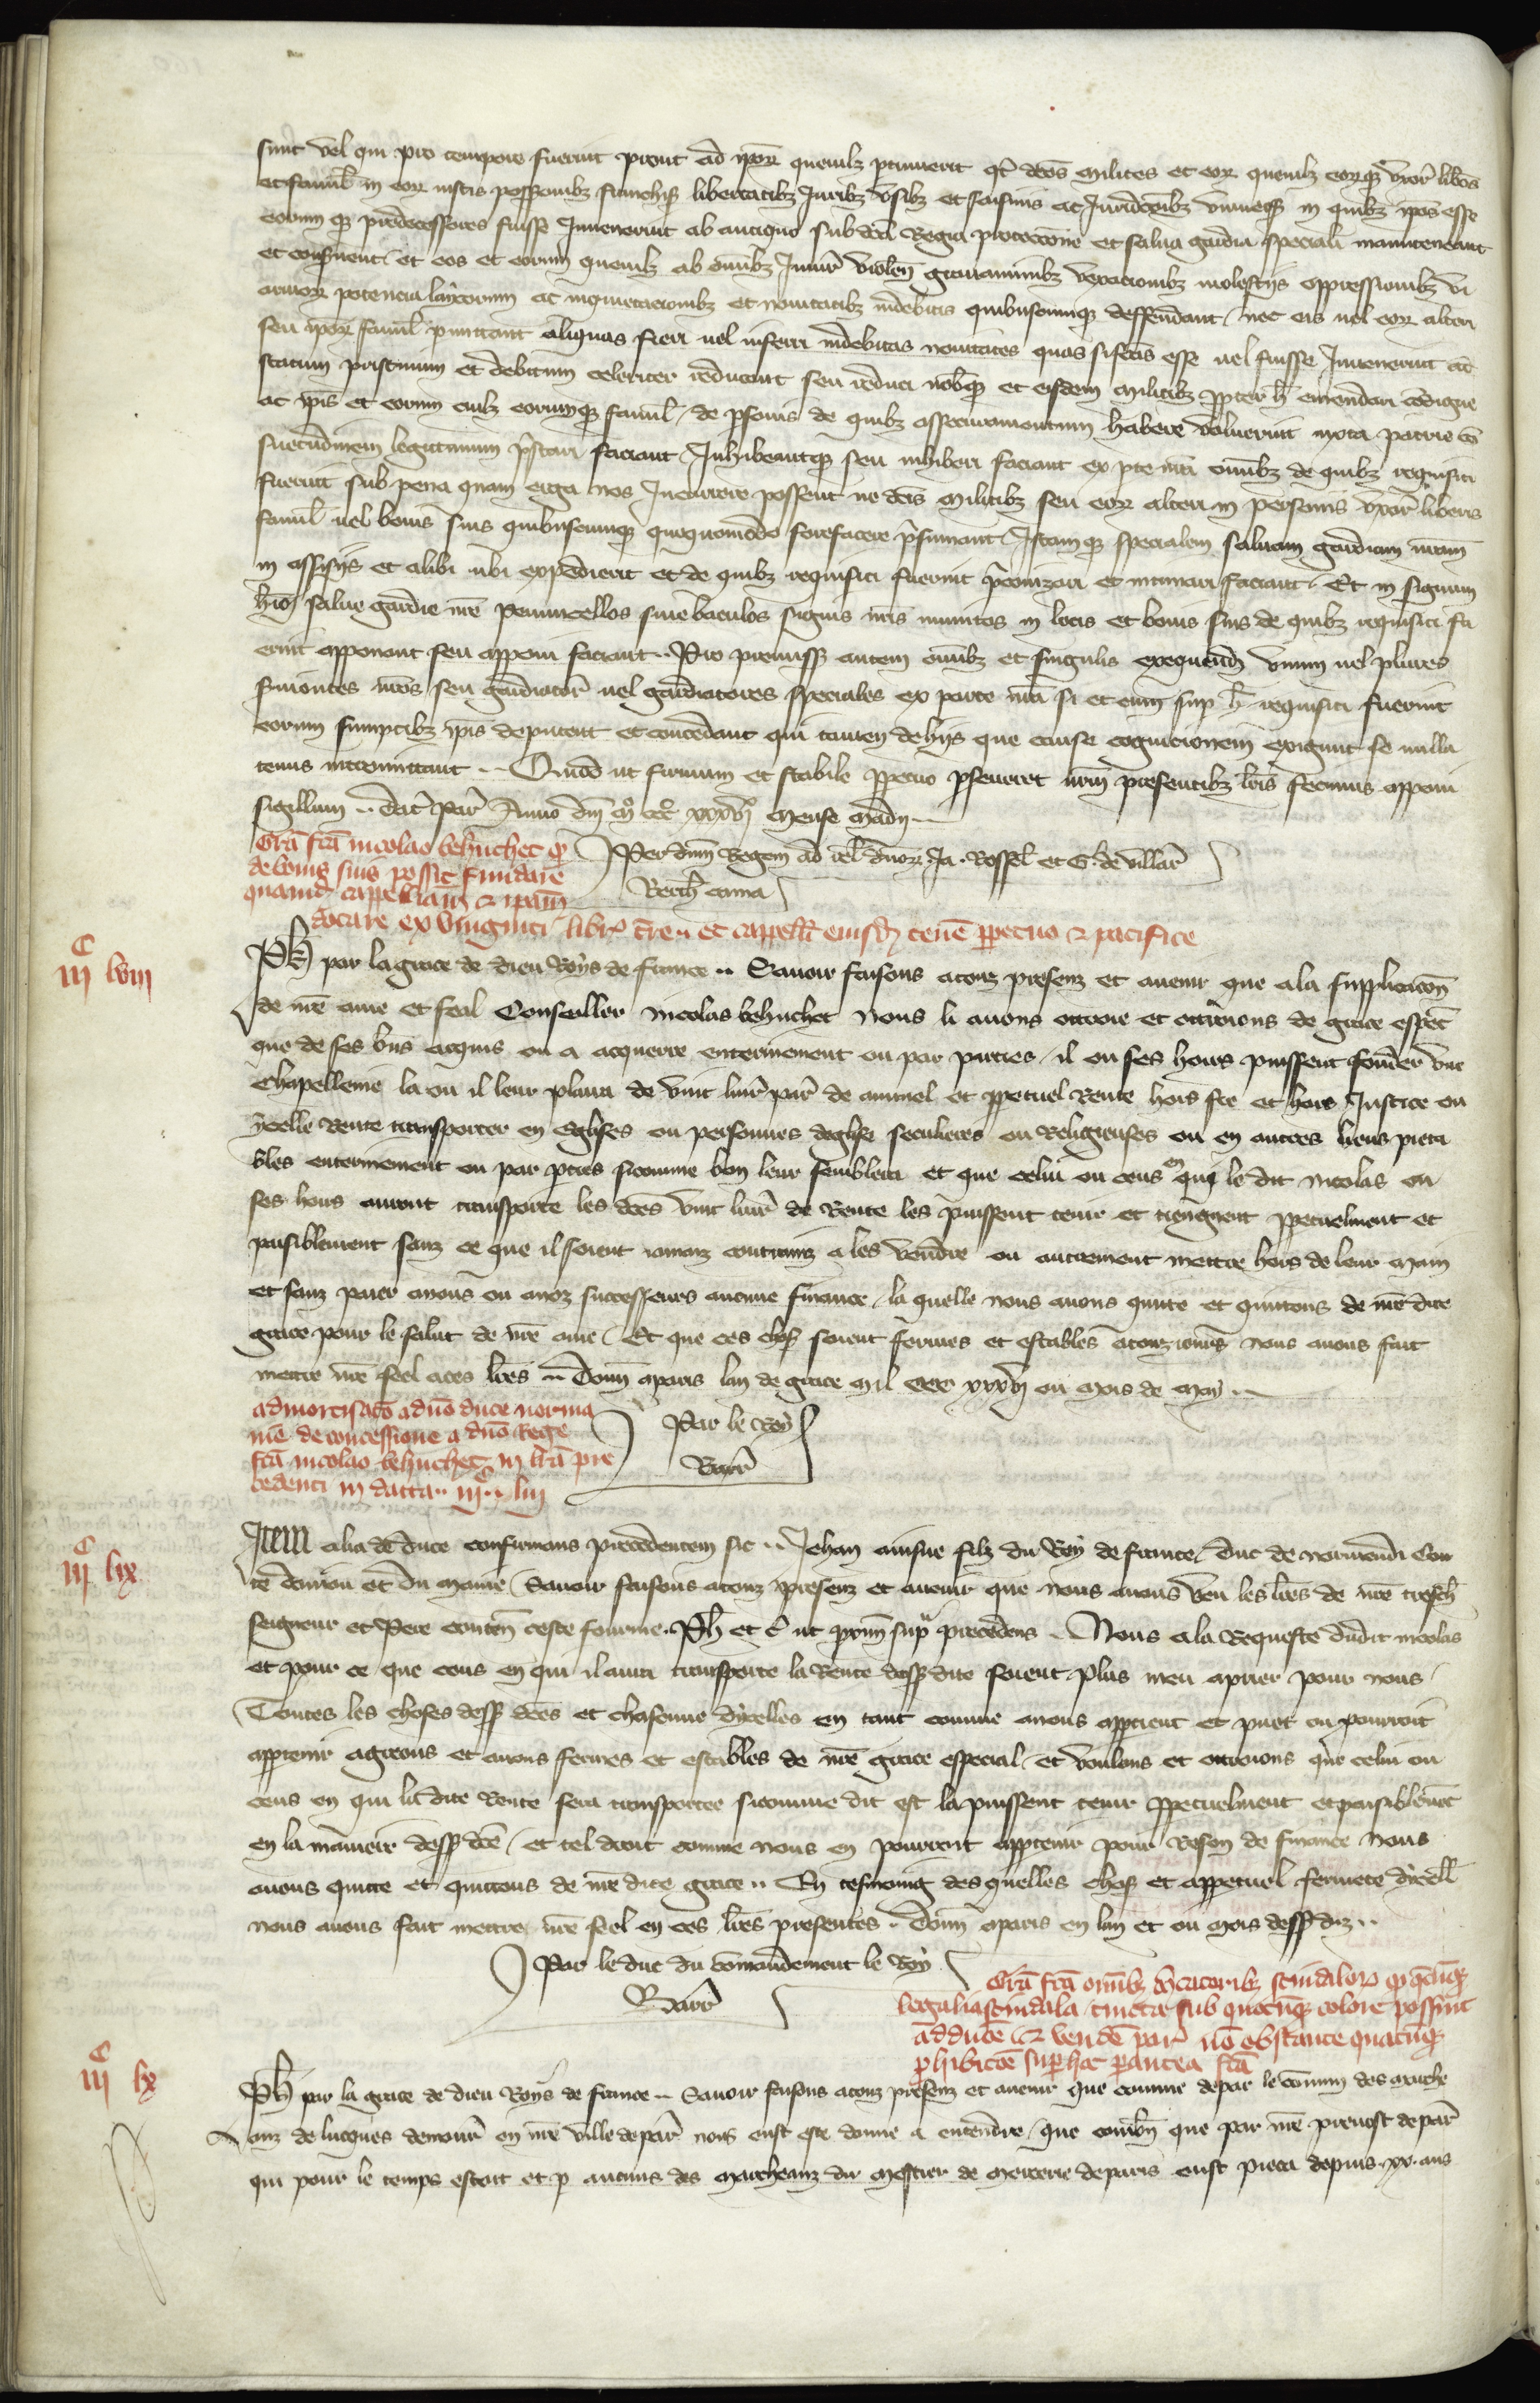 sunt vel qui pro tempore fuerint prout ad ipor quemlz ptinuerit qt dcos milites et eor quemlz eorqz vxor libos
ac famil in eor iustis possonibz franchis libertatibz Juribz vsibz et saisinis ac Juridconibz vniuersis in quibz ipos esse
eorum qz predecessores fuisse Inuenerint ab antiquo sub dcta Regia proteccione et salua gardia speciali manuteneant
et conseruent et eos et eorum quemlz ab omibz Iniur violen grauaminibz vexacionibz molestiis oppressionibz vi
armor potencia laicorum ac inquietacionibz et nouitatibz indebitis quibuscumqz deffendant nec eis uel eor alteri
seu ipor famil pmittant aliquas fieri uel inferri indebitas nouitates quas si fcas esse uel fuisse Inuenerint ad
statum pristinum et debitum celeriter reducant seu reduci nobqz et eisdem militibz ppter h emendari condigne
ac ipis et eorum cuilz eorumqz famil de psonis de quibz assecuramentum habere voluerint iuxta patrie con
suetudinem legitimum prestari faciant Inhibeantqz seu inhiberi faciant ex pte nra omibz de quibz requisiti
fuerint sub pena quam erga nos Incurrere possent ne dcis militibz seu eor alteri in personis vxor liberis
famil uel bonis suis quibuscumqz quoquomodo forefacere presumant Istamqz specialem saluam gardiam nram
in assisiis et alibi ubi expedierit et de quibz requisiti fuerint preconizari et intimari faciant Et in signum
huiu salue gardie nre penuncellos siue baculos signis nris munitos in locis et bonis suis de quibz requisiti fu
erint apponant seu apponi faciant Pro premissis autem omibz et singulis exequend vnum uel plures
seruientes nros seu gardiator uel gardiatores speciales ex parte nra si et cum sup h requisiti fuerint
eorum sumptibz ipis deputent et concedant qui tamen de hiis que cause cognicionem exigunt se nulla
tenus intromittant Quod ut firmum et stabile ppetuo pseueret nrm presentibz lris fecimus apponi
sigillum Dat Par Anno dni mo ccco xxxvii mense Madii
Gra fca nicolao behuchet qd
de bonis suis possit fundare
quamd cappellam et ipam
dotare ex viuginti libr tren et cappell eiusd tene ppetuo et pacifice
Per dnm Regem ad rel dnor Ja Rossel et G de villar
Berth cama
iiic lviii
Ph par la grace de dieu Roys de france Sauoir faisons a touz presenz et auenir que a la supplicacon
de nre ame et feal Conseiller Nicolas behuchet nous li auons ottroie et ottroions de grace espec
que de ses bns acquis ou a acquerre entierement ou par parties il ou ses hoirs puissent fonder vne
Chapellenie la ou il leur plaira de vint liur par de annuel et ppetuel Rente hors fie et hors Justice ou
ycelle Rente transporter en eglises ou personnes deglise seculieres ou Religieuses ou en autres lieus pieta
bles entierement ou par pties sicomme bon leur semblera et que celui ou ceus en qui le dit Nicolas ou
ses hoirs auront transporte les dces vint liur de Rente les puissent tenir et tiengnent ppetuelment et
paisiblement sanz ce que il soient iamaiz contrainz a les vendre ou autrement mettre hors de leur main
et sanz paier a nous ou a noz successeurs aucune finance la quelle nous auons quitte et quittons de nre dite
grace pour le salut de nre ame Et que ces chos soient fermes et estables a touz iours nous auons fait
mettre nre seel a ces lres Donn a paris lan de grace mil ccc xxxvii ou mois de may
admortisaco a dno duce norma
nie de concessione a dno Rege
fca nicolao behuchet in lra pre
cedenti in datta iiic lvii
Par le Roy
Barr
iiic lix
Item alia de duce confirmans precedentem sic Jehan ainsne filz du Roy de france duc de normendi Con
te daniou et du maine Sauoir faisons a touz presenz et auenir que nous auons veu les lres de nre tresch
seigneur et Pere conten ceste fourme Ph et c ut proxim supra precedens Nous a la Requeste dudit nicolas
et pour ce que ceus en qui il aura transporte la Rente dessdite soient plus tenu a prier pour nous
Toutes les choses dess dces et chascune dycelles en tant comme a nous apptient et puet ou pourroit
apptenir agreons et auons fermes et estables de nre grace especial et voulons et ottroions que celui ou
ceus en qui la dite Rente sera transportee sicomme dit est la puissent tenir ppetuelment et paisiblemet
en la maniere dess dce et tel droit comme nous en pourroit apptenir pour Reson de finance nous
auons quitte et quittons de nre dite grace En tesmoing des quelles chos et a ppetuel fermete dicell
nous auons fait mettre nre seel en ces lres presentes Donn a paris en lan et ou mois dess diz
Par le duc du commandement le Roy
Barr
Gra fca omibz mcatoribz scindalor qd qcuqz
legalia scindala tincta sub quocuqz colore possint
adduce et vende par no obstante quacuqz
phibicoe sup hac pantea fca
iiic lx
Ph par la grace de dieu Roys de france Sauoir faisons a touz presenz et auenir que comme de par le comun des marche
anz de lucques demour en nre ville de par nous eust este donne a entendre que combn que par nre preuost de par
qui pour le temps estoit et p aucuns des marcheanz du mestier de mercerie de paris eust pieca depuis xv ans